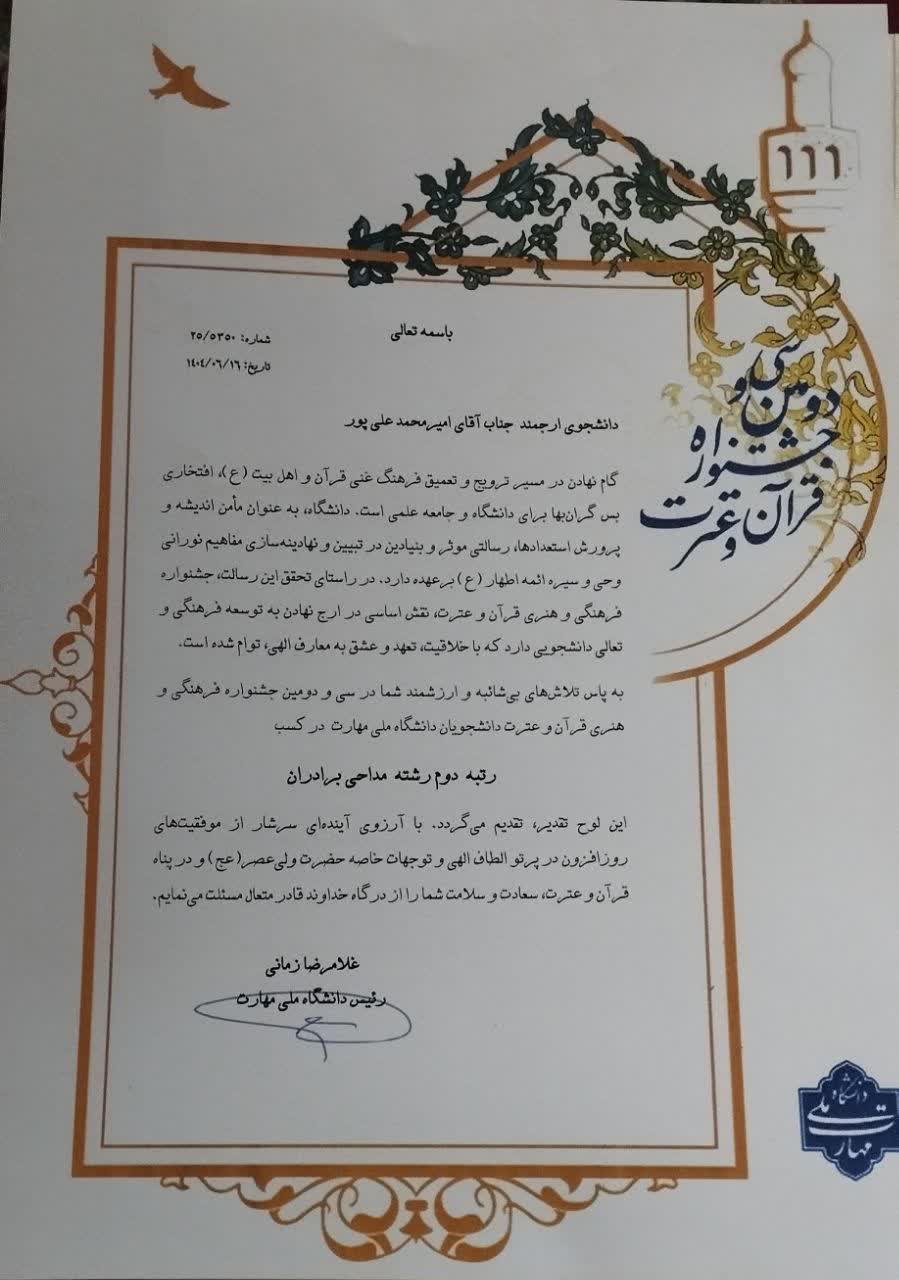 ۱۱۱
سی و
دومین
جشنواره
قرآن و عترت
باسمه تعالی
شماره: ۲۵/۵۳۵۰
تاریخ: ۱۴۰۴/۰۶/۱۶
دانشجوی ارجمند جناب آقای امیرمحمد علی‌پور
گام نهادن در مسیر ترویج و تعمیق فرهنگ غنی قرآن و اهل بیت (ع)، افتخاری
بس گران‌بها برای دانشگاه و جامعه علمی است. دانشگاه، به عنوان مأمن اندیشه و
پرورش استعدادها، رسالتی موثر و بنیادین در تبیین و نهادینه‌سازی مفاهیم نورانی
وحی و سیره ائمه اطهار (ع) برعهده دارد. در راستای تحقق این رسالت، جشنواره
فرهنگی و هنری قرآن و عترت، نقش اساسی در ارج نهادن به توسعه فرهنگی و
تعالی دانشجویی دارد که با خلاقیت، تعهد و عشق به معارف الهی، توام شده است.
به پاس تلاش‌های بی‌شائبه و ارزشمند شما در سی و دومین جشنواره فرهنگی و
هنری قرآن و عترت دانشجویان دانشگاه ملی مهارت در کسب
رتبه دوم رشته مداحی برادران
این لوح تقدیر، تقدیم می‌گردد. با آرزوی آینده‌ای سرشار از موفقیت‌های
روزافزون در پرتو الطاف الهی و توجهات خاصه حضرت ولی‌عصر(عج) و در پناه
قرآن و عترت، سعادت و سلامت شما را از درگاه خداوند قادر متعال مسئلت می‌نمایم.
غلامرضا زمانی
رئیس دانشگاه ملی مهارت
دانشگاه
ملی
مهارت